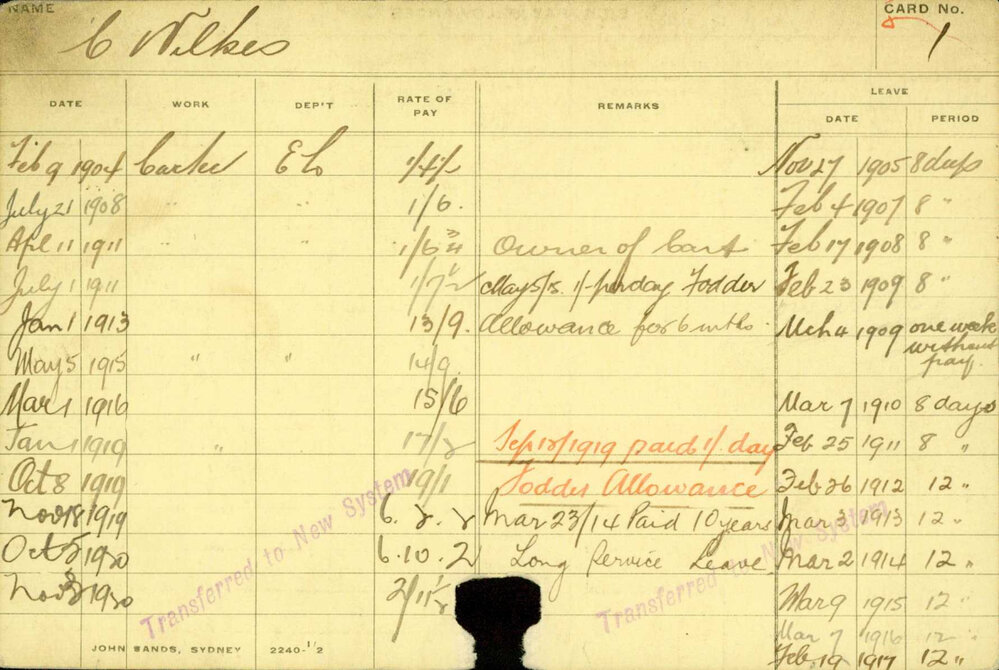 NAME CARD No.
C Wilkes 1
DATE WORK DEP'T RATE OF PAY REMARKS LEAVE
DATE PERIOD
Feb 9 1904 Carter E Co 1/4/- Nov 27 1905 8 days
July 21 1908 " " 1/6. Feb 4 1907 8 "
Apl 11 1911 " " 1/6 3/4 Owner of Cart Feb 17 1908 8 "
July 1 1911 1/7 1/2 May 5/15. 1/- per day Fodder Feb 23 1909 8 "
Jan 1 1913 13/9. Allowance for 6 mths. Mch 4 1909 one week without pay.
May 5 1915 " " 14/9
Mar 1 1916 15/6 Mar 7 1910 8 days
Jan 1 1919 " 17/2 Sep 1919 paid 1/. day Feb 25 1911 8 "
Oct 8 1919 19/1 Fodder Allowance Feb 26 1912 12 "
Nov 18 1919 6. 2. 2 Mar 23/14 Paid 10 years Mar 3 1913 12 "
Oct 1920 6. 10. 2 Long Service Leave Mar 2 1914 12 "
Nov 1920 Mar 9 1915 12 "
Mar 7 1916 12 "
Feb 19 1917 12 "
Transferred to New System
Transferred to New System
JOHN SANDS, SYDNEY 2240-1/2